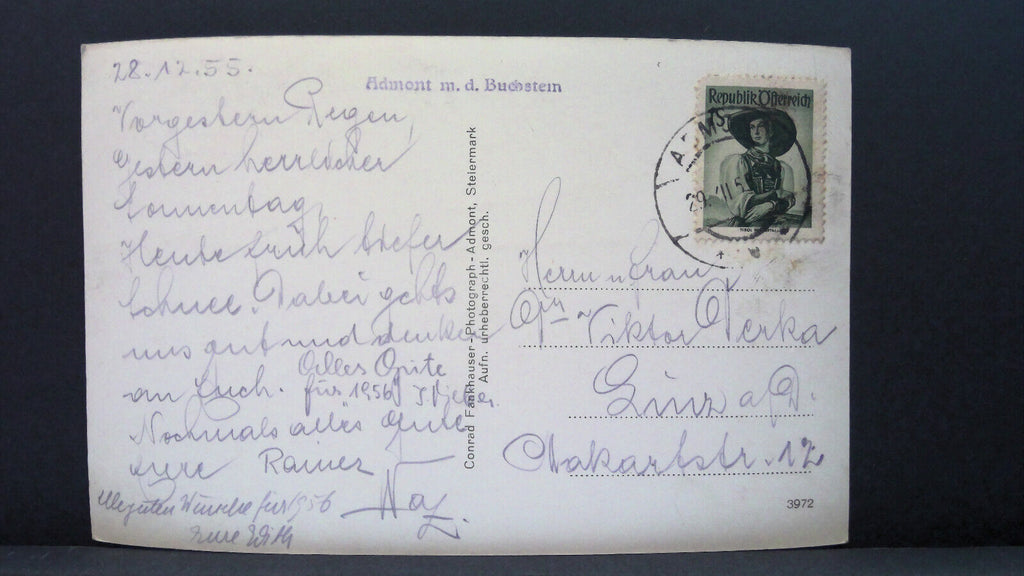 28.12.55.
Vorgestern Regen,
Gestern herrlicher
Sonnentag
Heute früh tiefer
Schnee. Dabei gehts
uns gut und denken
an Euch. Alles Gute
für 1956
Nochmals alles Gute
Eure Rainer
Alle guten Wünsche für 1956
Eure Edith
Admont m. d. Buchstein
Conrad Fankhauser - Photograph - Admont, Steiermark
Aufn. urheberrechtl. gesch.
Republik Österreich
29. XII. 5
Herrn u Frau
Viktor Perka
Linz a/D.
Makartstr. 12
3972